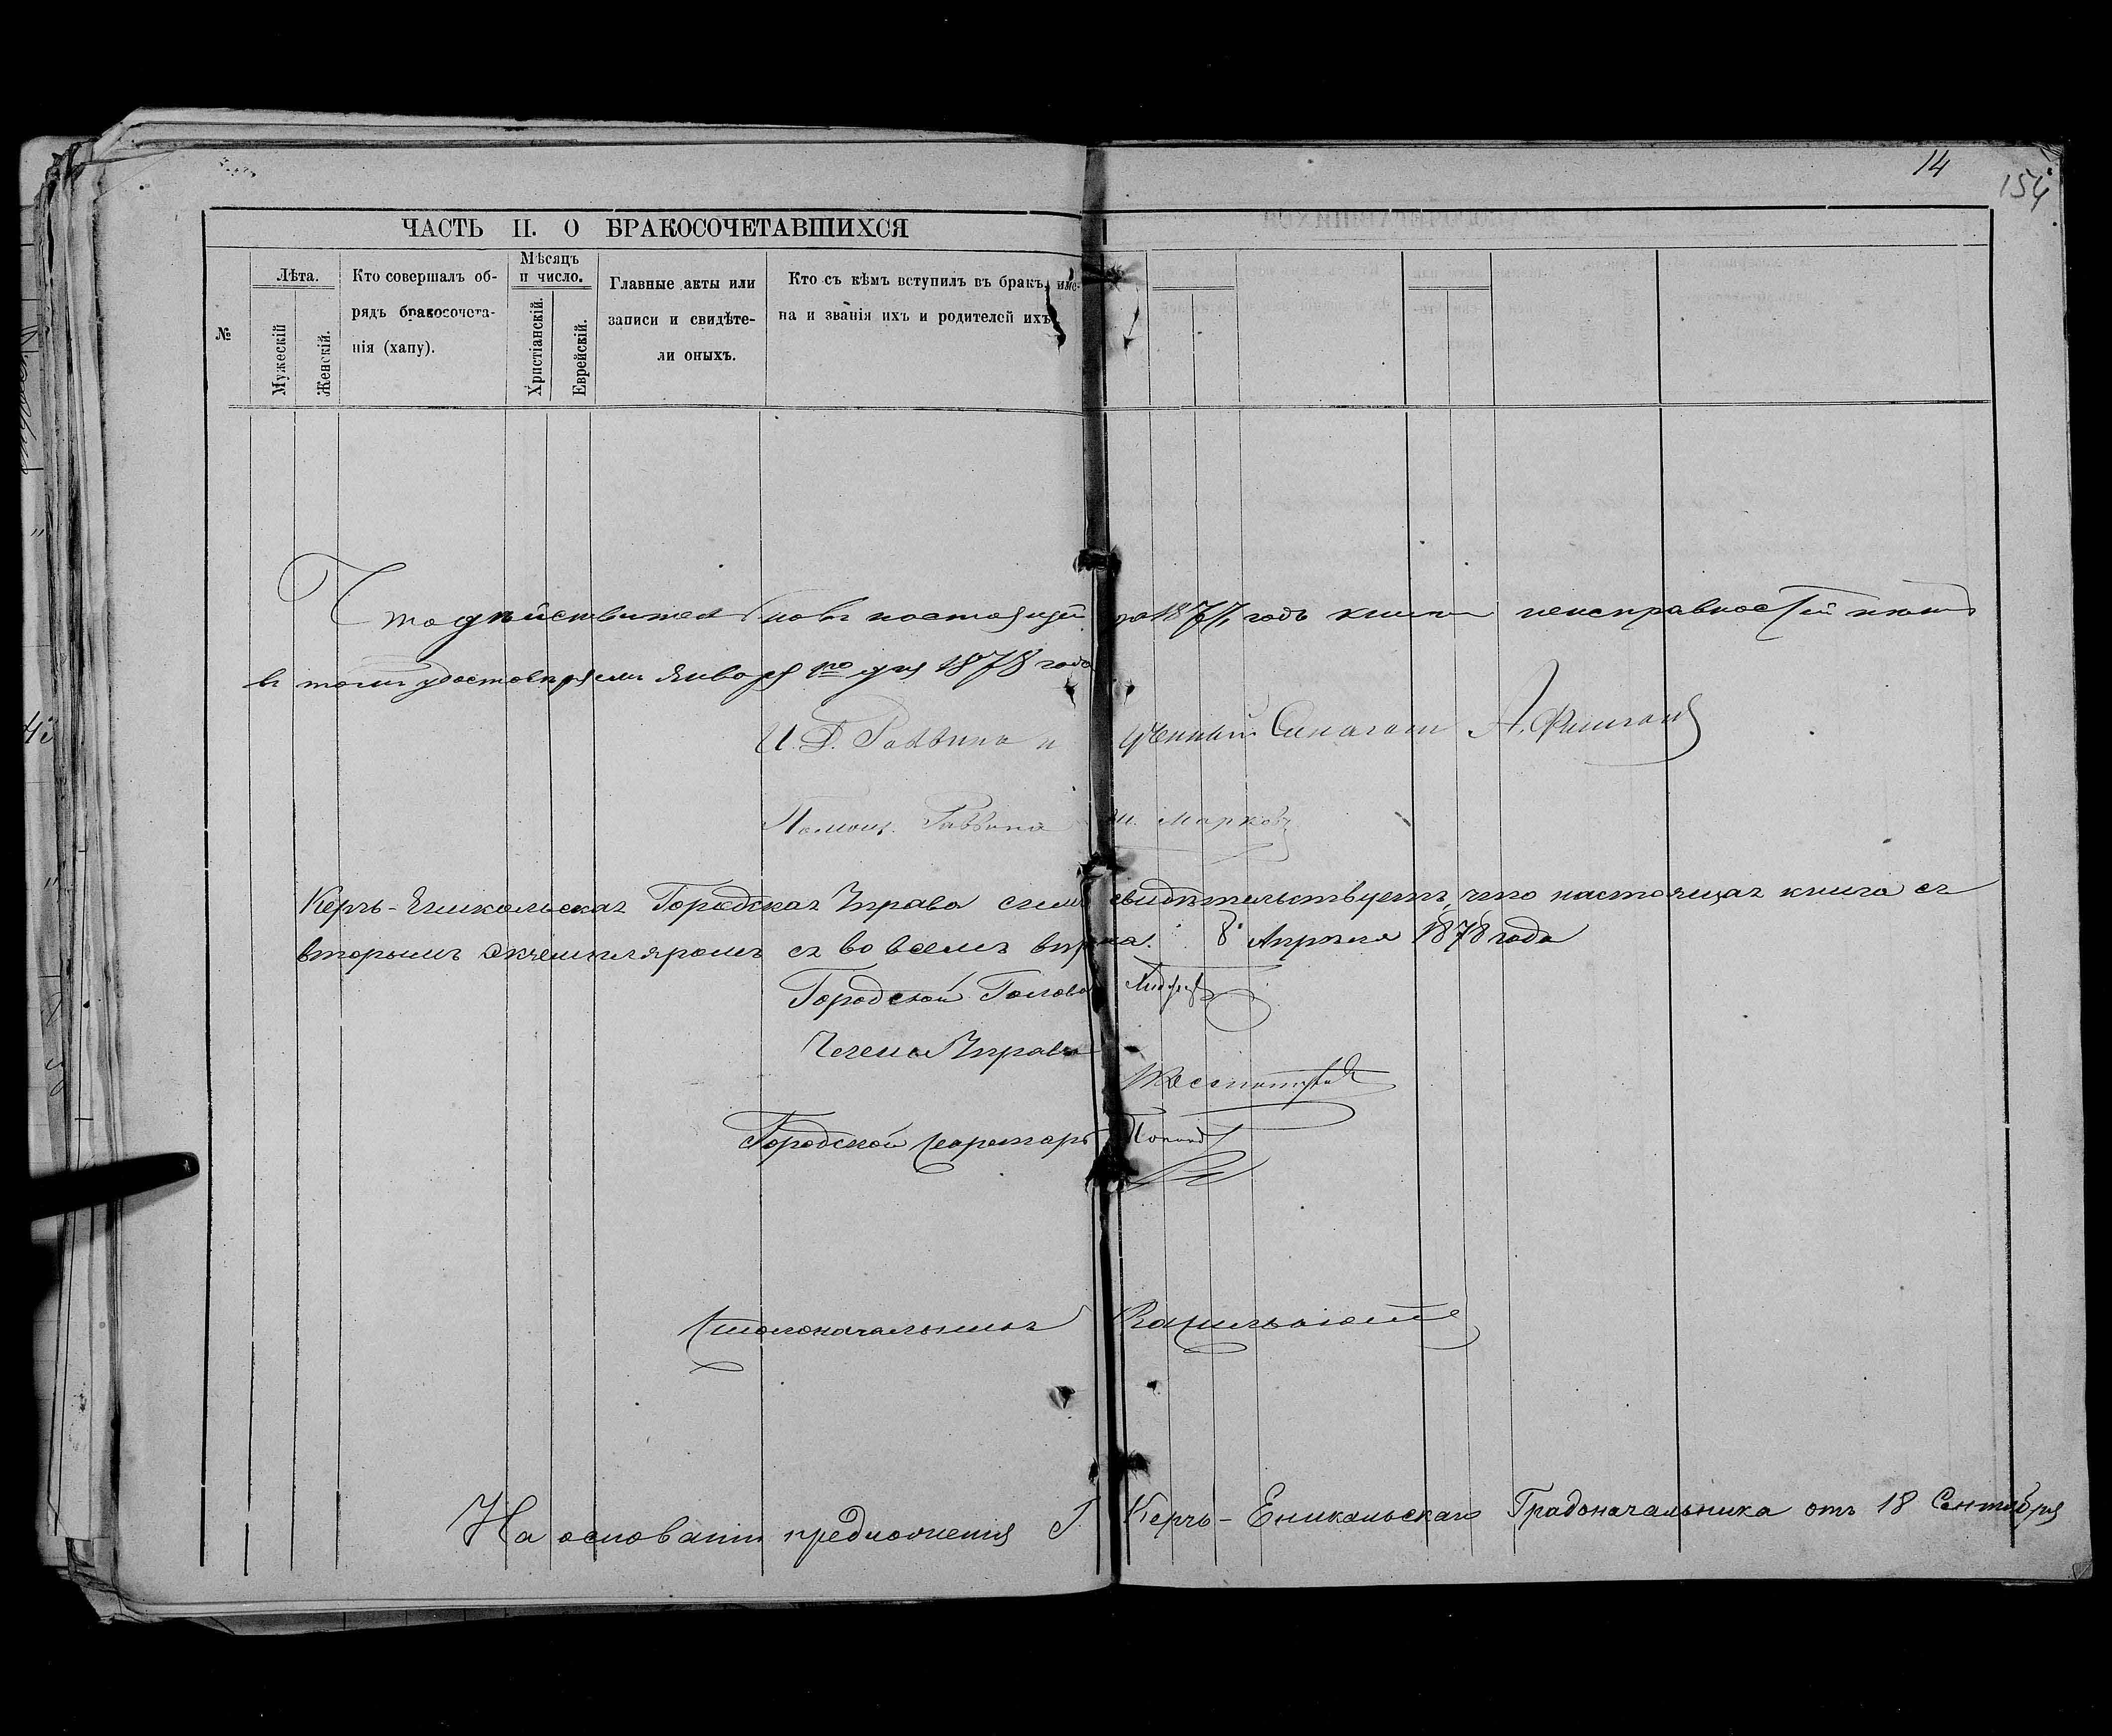 14
154
ЧАСТЬ II. О БРАКОСОЧЕТАВШИХСЯ
№
Лѣта.
Мужескій
Женскій.
Кто совершалъ об-
рядъ бракосочета-
нія (хапу).
Мѣсяцъ
и число.
Христіанскій.
Еврейскій.
Главные акты или
записи и свидѣте-
ли оныхъ.
Кто съ кѣмъ вступилъ въ бракъ, име-
на и званія ихъ и родителей ихъ.
Что дѣйствительно въ настоящей за 1877 годъ книги неисправностей нѣтъ
въ томъ удостовѣряемъ Января 1го дня 1878 года
И. Д. Раввина и ученый Синагоги А.
Помощ. Раввина Ш. Марковъ
Керчь-Еникольская Городская Управа симъ свидѣтельствуетъ, что настоящая книга съ
вторымъ экземпляромъ съ во всемъ вѣрна. 8 Апрѣля 1878 года
Городской Голова
Членъ Управы
Городской Секретарь
Столоначальникъ
На основаніи предложенія Г. Керчь-Еникольскаго Градоначальника отъ 18 Сентября